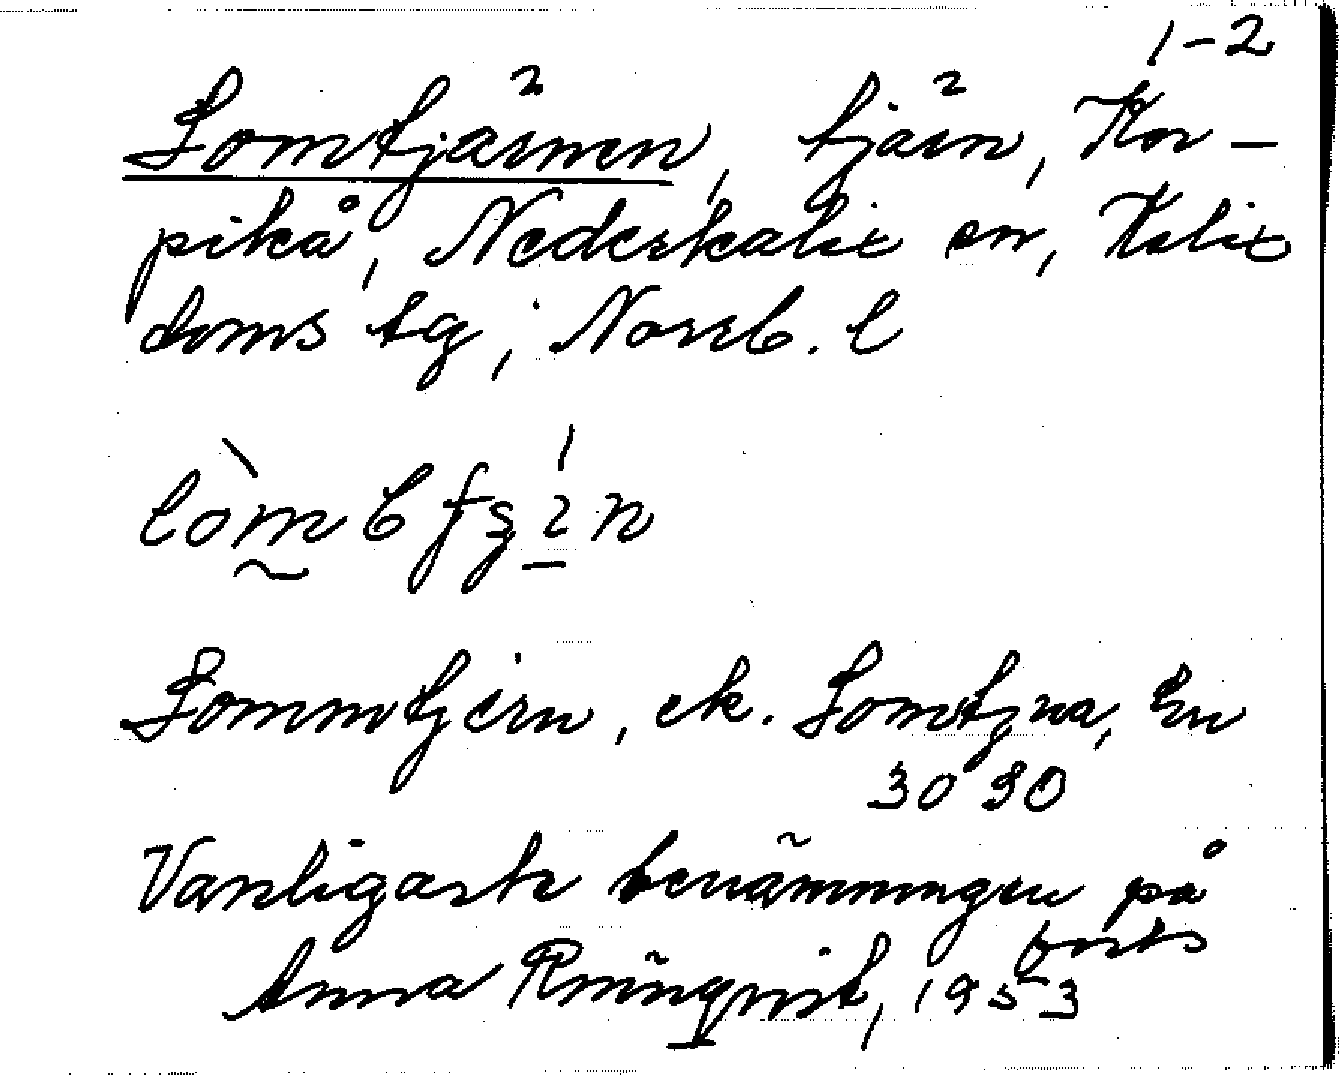 1-2
Lomtjärnen, tjärn, Kor-
pikå, Nederkalix sn, Kalix
doms tg, Norrb. l
Lommtjern, ek. Lomtjna, En
3090
Vanligaste benämningen på
forts
Anna Rönnqvist, 1953